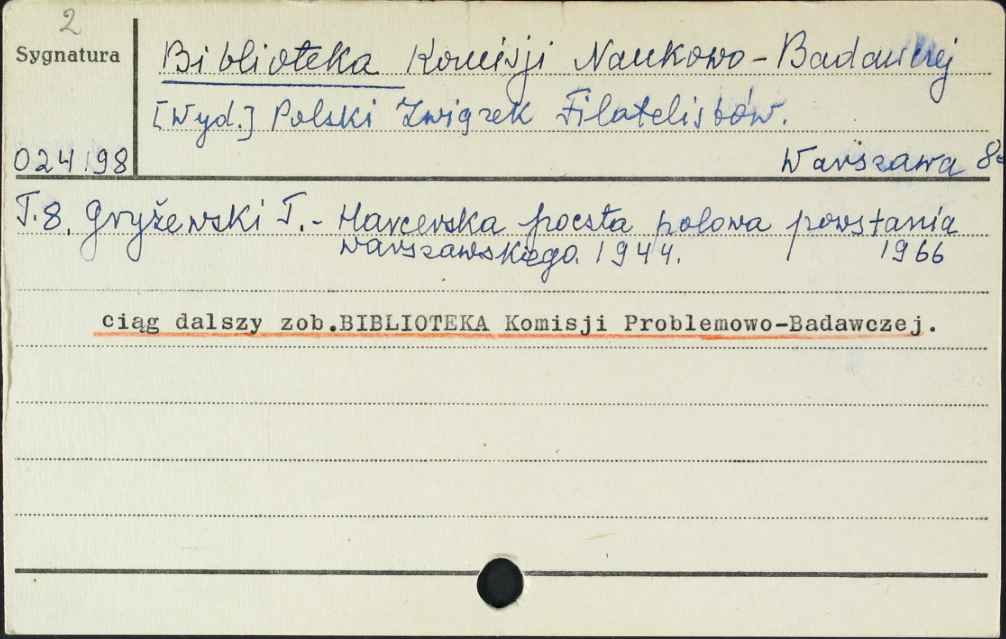 2
Sygnatura
Biblioteka Komisji Naukowo-Badawczej
[Wyd.] Polski Związek Filatelistów.
024198
Warszawa 8°
T.8. Gryżewski T.- Harcerska poczta polowa powstania
warszawskiego. 1944. 1966
ciąg dalszy zob.BIBLIOTEKA Komisji Problemowo-Badawczej.